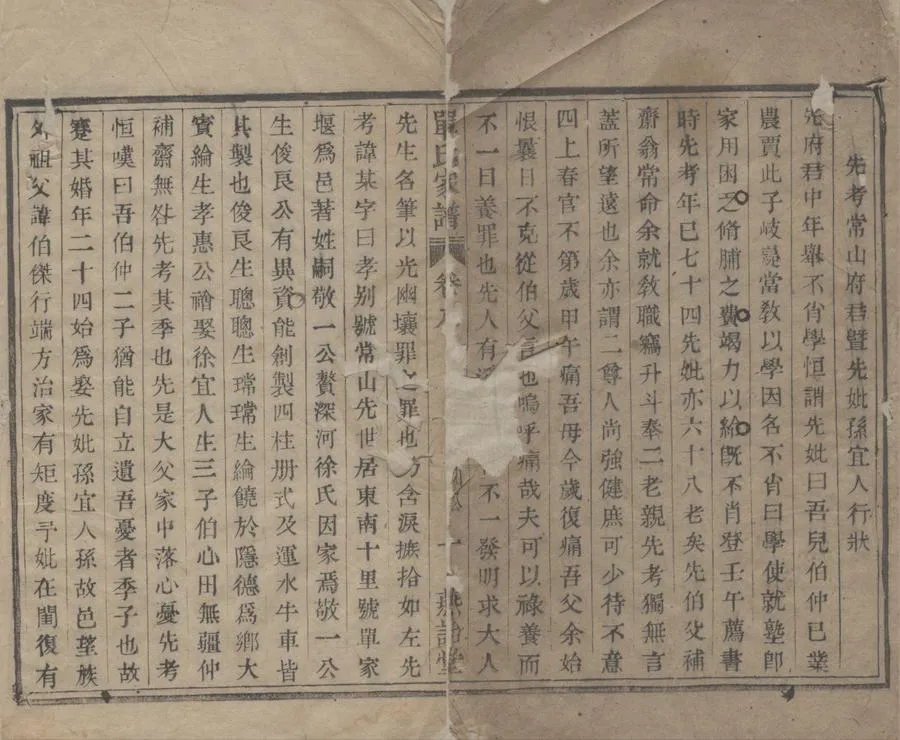 先考常山府君暨先妣孫宜人行狀
先府君中年舉不肖學恒謂先妣曰吾兒伯仲已業
農賈此子岐嶷當教以學因名不肖曰學使就塾卽
家用困乏脩脯之費竭力以給旣不肖登壬午薦書
時先考年已七十四先妣亦六十八老矣先伯父補
齋翁常命余就教職竊升斗奉二老親先考獨無言
蓋所望遠也余亦謂二尊人尚強健庶可少待不意
四上春官不第歲甲午痛吾母今歲復痛吾父余始
恨曩日不克從伯父言也嗚呼痛哉夫可以祿養而
不一日養罪也先人有 不一發明求大人
單氏家譜 卷 十 燕詒堂
先生名筆以光幽壤罪之罪也 含淚摭拾如左先
考諱某字曰孝别號常山先世居東南十里號單家
堰爲邑著姓嗣敬一公贅深河徐氏因家焉敬一公
生俊良公有異資能創製四柱册式及運水牛車皆
其製也俊良生聰聰生璫璫生綸饒於隱德爲鄉大
賓綸生孝惠公禬娶徐宜人生三子伯心田無疆仲
補齋無咎先考其季也先是大父家中落心憂先考
恒嘆曰吾伯仲二子猶能自立遺吾憂者季子也故
蹇其婚年二十四始爲娶先妣孫宜人孫故邑望族
外祖父諱伯傑行端方治家有矩度予妣在閨復有